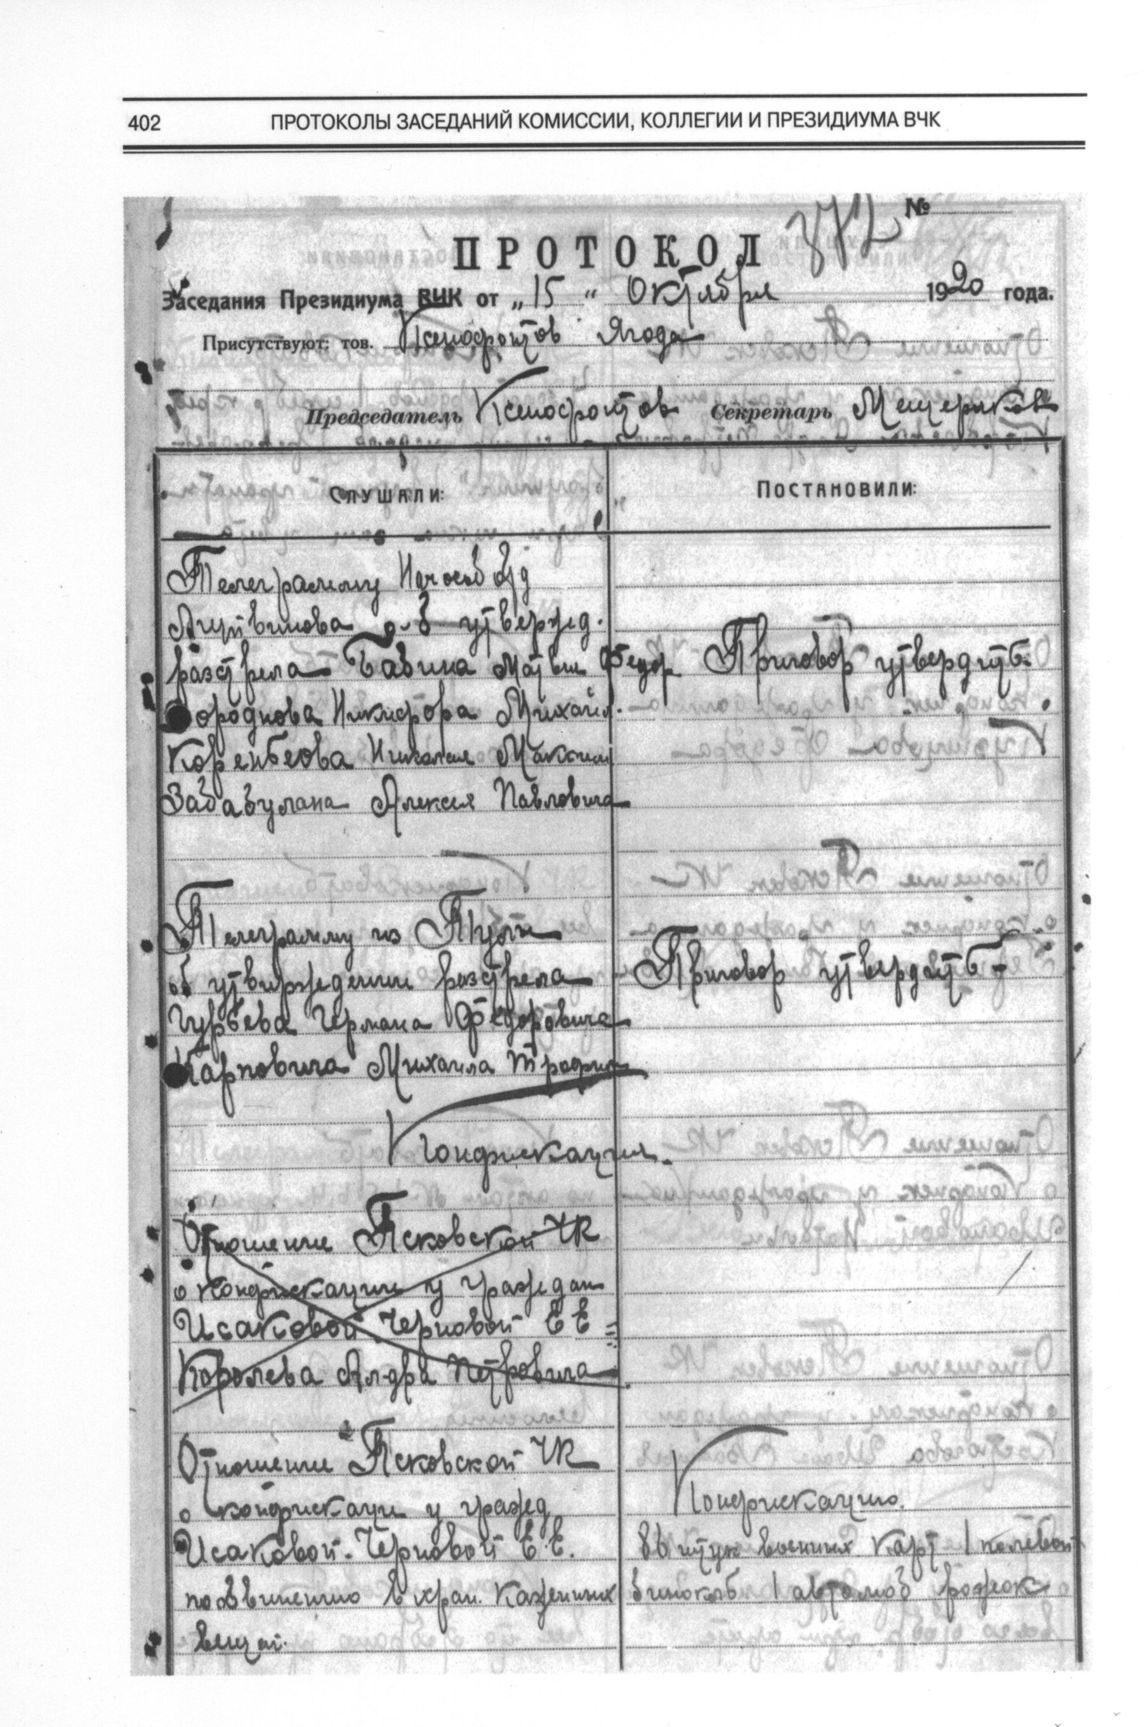 402 ПРОТОКОЛЫ ЗАСЕДАНИЙ КОМИССИИ, КОЛЛЕГИИ И ПРЕЗИДИУМА ВЧК
№
ПРОТОКОЛ
Заседания Президиума ВЧК от „15“ Октября 1920 года.
Присутствуют: тов. Ксенофонтов Ягода
Председатель Ксенофонтов Секретарь Мещеряков
СЛУШАЛИ: ПОСТАНОВИЛИ:
Телеграмму
Литвинова утвержд.
разстрела Бабина Матвея Федор Приговор утвердить.
Никифора Михайл.
Николая Максим
Алексея Павловича
Телеграмму из Тулы
об утверждении разстрела Приговор утвердить
Гурьева Германа Федоровича
Карповича Михаила Трофим
Конфискация.
Отношение Псковской ЧК
о конфискации у граждан
Исаковой Черновой Е Е =
Королева Ал-дра Петровича
Отношение Псковской ЧК
о конфискации у гражд Конфискацию.
Исаковой-Черновой Е.Е. штук военных карт 1 полевой
по обвинению в хран. казенных бинокль 1 автомоб рожок
вещей.